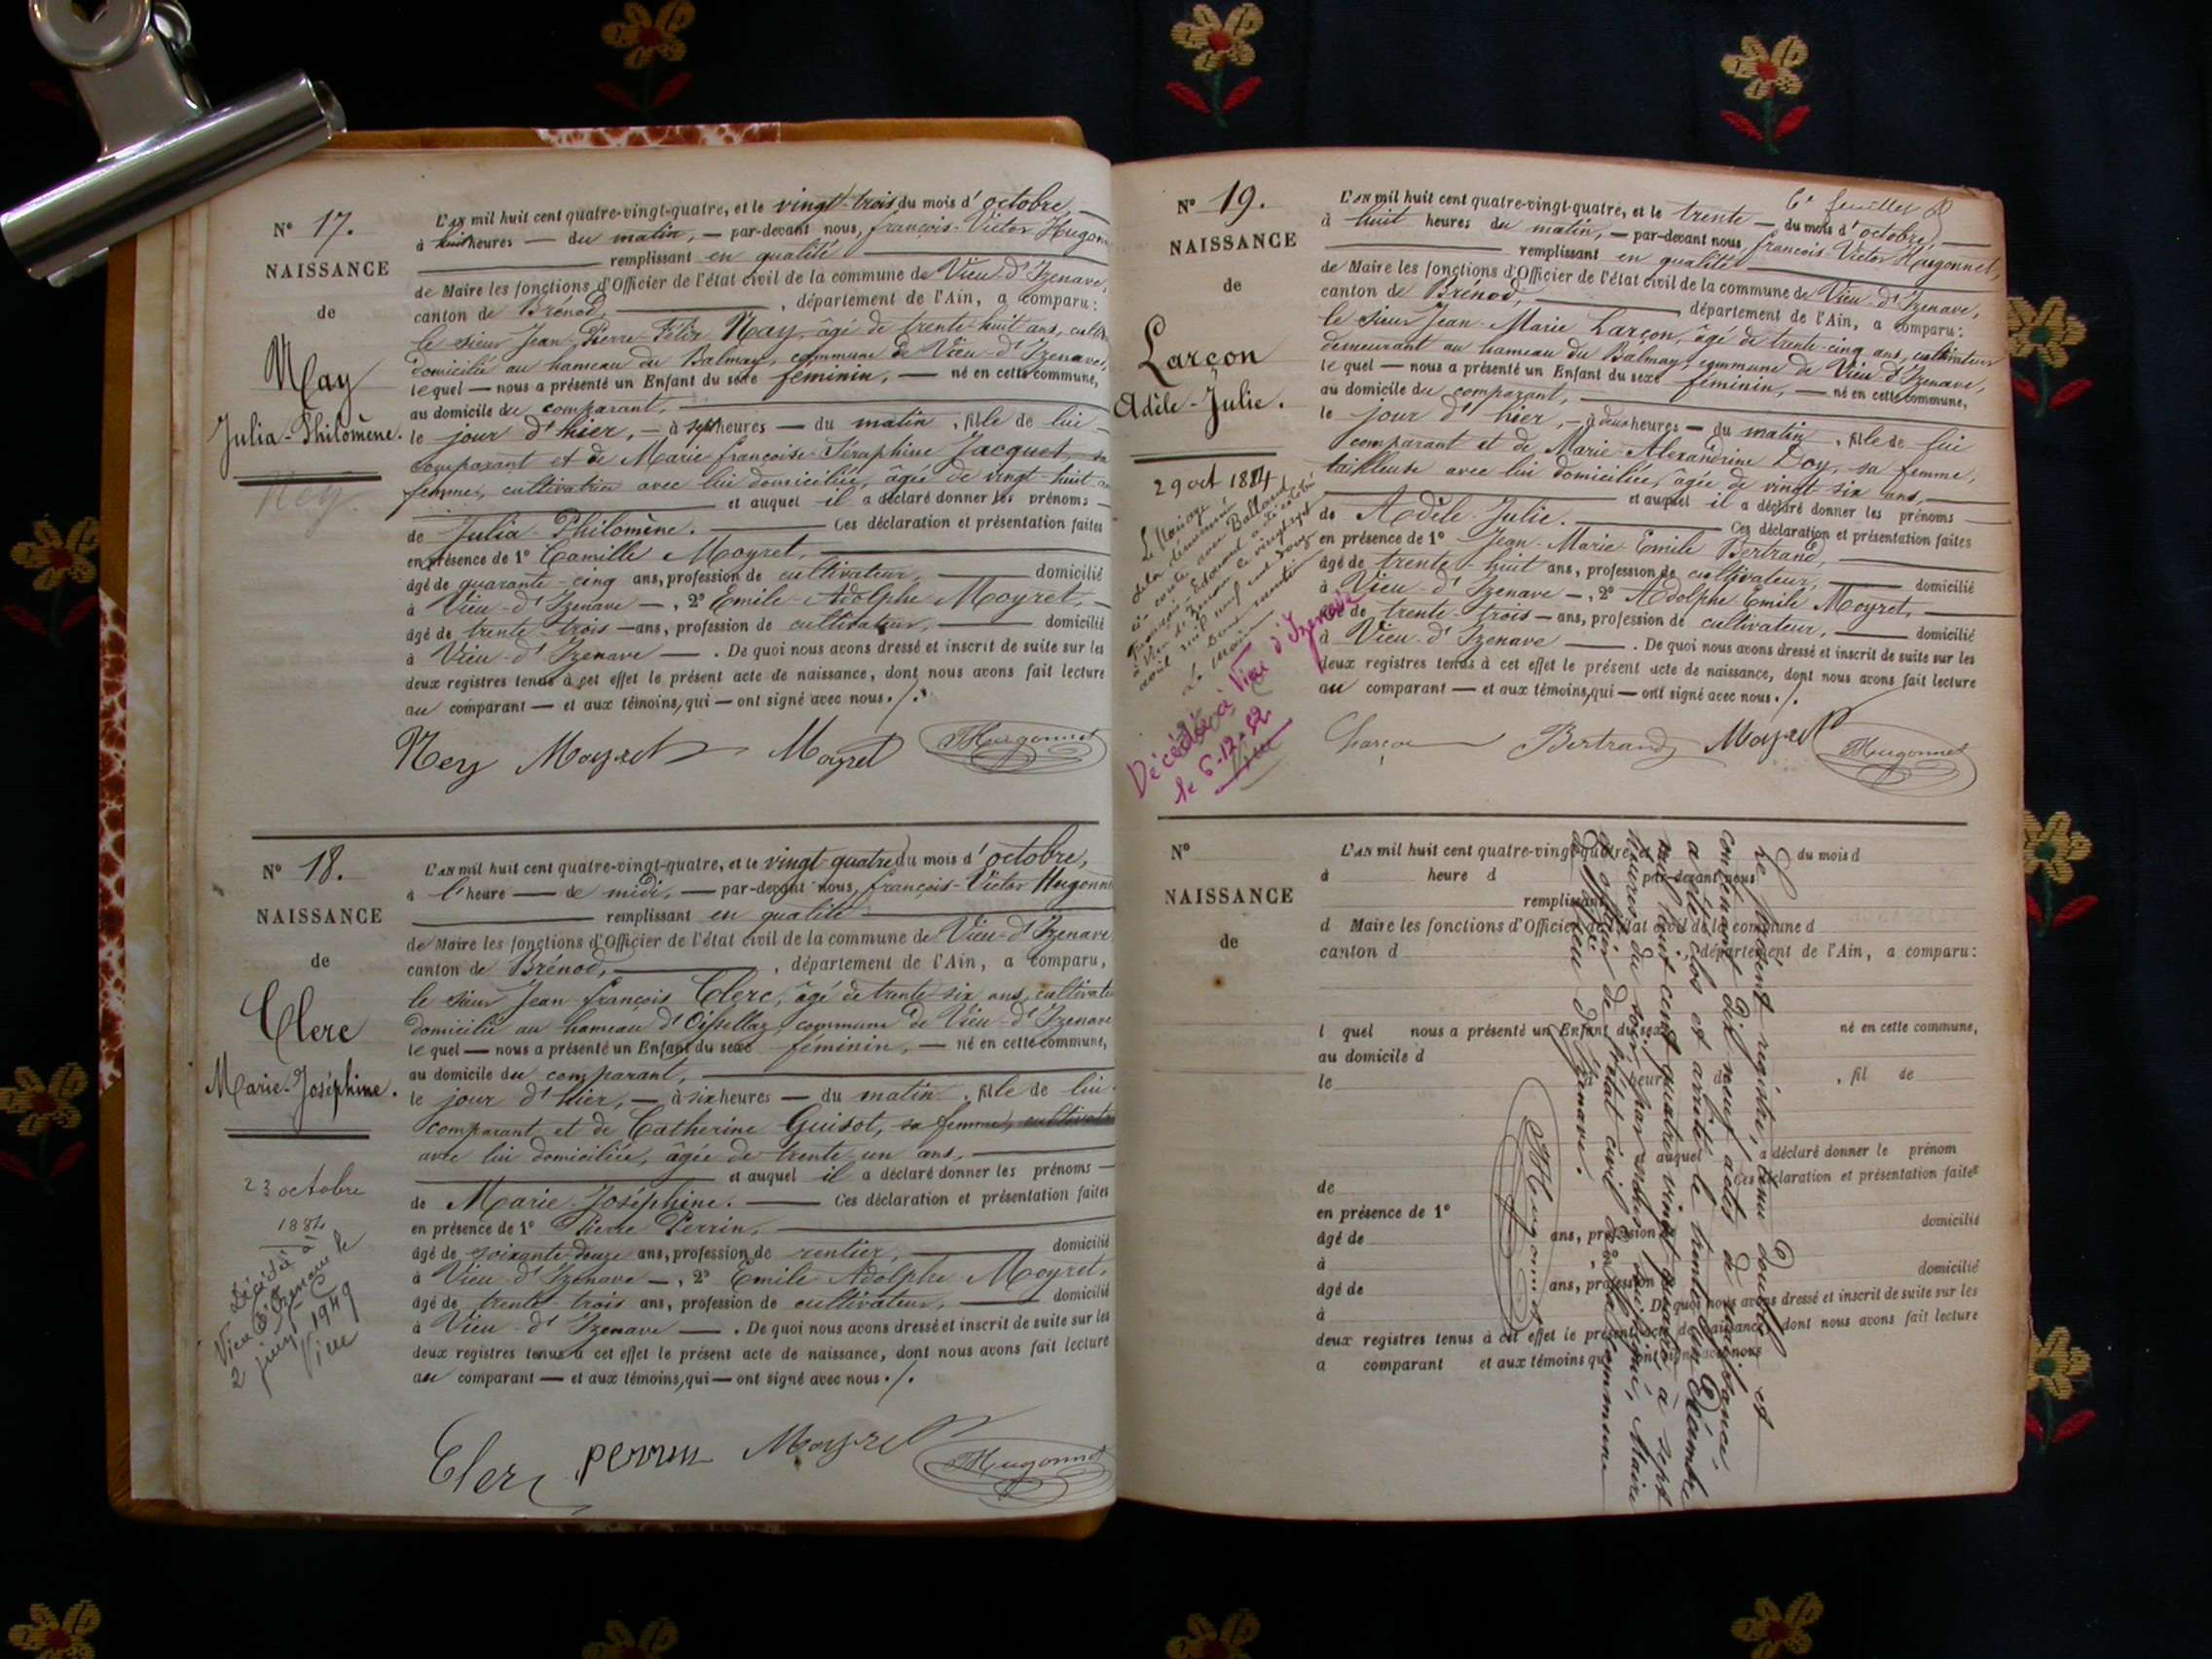 N° 17.
NAISSANCE
de
Nay
Julia-Philomène.
Ney
L'AN mil huit cent quatre-vingt-quatre, et le vingt-trois du mois d'octobre,
à huit heures — du matin, — par-devant nous, françois-Victor Hugonn
remplissant en qualité
de Maire les fonctions d'Officier de l'état civil de la commune de Vieu-d'Izenave,
canton de Brénod, , département de l'Ain, a comparu:
le sieur Jean-Pierre-Félix Nay, âgé de trente-huit ans, cultiv
domicilié au hameau du Balmay, commune de Vieu-d'Izenave,
lequel — nous a présenté un Enfant du sexe féminin, — né en cette commune,
au domicile du comparant,
le jour d'hier, — à sept heures — du matin, fille de lui
comparant et de Marie françoise Séraphine Jacquet, sa
femme, cultivatrice avec lui domiciliée, âgée de vingt-huit
et auquel il a déclaré donner les prénoms
de Julia-Philomène. Ces déclaration et présentation faites
en présence de 1° Camille Moyret,
âgé de quarante-cinq ans, profession de cultivateur, domicilié
à Vieu-d'Izenave —, 2° Emile-Adolphe Moyret,
âgé de trente-trois — ans, profession de cultivateur, domicilié
à Vieu-d'Izenave — . De quoi nous avons dressé et inscrit de suite sur les
deux registres tenus à cet effet le présent acte de naissance, dont nous avons fait lecture
au comparant — et aux témoins, qui — ont signé avec nous./.
Ney Moyret Moyret Hugonnet
N° 18.
NAISSANCE
de
Clerc
Marie-Joséphine.
23 octobre
1884
Décédée à
Vieu d'Izenave le
2 1949
L'AN mil huit cent quatre-vingt-quatre, et le vingt-quatre du mois d'octobre,
à l'heure — de midi, — par-devant nous, françois-Victor Hugonn
remplissant en qualité
de Maire les fonctions d'Officier de l'état civil de la commune de Vieu-d'Izenave
canton de Brénod, , département de l'Ain, a comparu,
le sieur Jean-françois Clerc, âgé de trente-six ans, cultivate
domicilié au hameau d'Oissellaz, commune de Vieu-d'Izenave
lequel — nous a présenté un Enfant du sexe féminin, — né en cette commune,
au domicile du comparant,
le jour d'hier, — à six heures — du matin, fille de lui
comparant et de Catherine Guisot, sa femme, cultivatr
avec lui domiciliée, âgée de trente-un ans,
et auquel il a déclaré donner les prénoms
de Marie-Joséphine. Ces déclaration et présentation faites
en présence de 1° Pierre Perrin,
âgé de soixante-douze ans, profession de rentier, domicilié
à Vieu-d'Izenave —, 2° Emile Adolphe Moyret,
âgé de trente-trois ans, profession de cultivateur, domicilié
à Vieu-d'Izenave — . De quoi nous avons dressé et inscrit de suite sur les
deux registres tenus à cet effet le présent acte de naissance, dont nous avons fait lecture
au comparant — et aux témoins, qui — ont signé avec nous./.
Clerc perrin Moyret Hugonnet
6e feuillet
N° 19.
NAISSANCE
de
Larçon
Adèle-Julie.
29 oct 1884
Le Mariage
de la dénommée
ci-contre avec Balland
françois-Edouard a été célébré
à Vieu-d'Izenave le vingt-sept
avril mil neuf cent douze
Dont mention
Le Maire
Décédée à Vieu d'Izenave
le 6-12-52
L'AN mil huit cent quatre-vingt-quatre, et le trente — du mois d'octobre,
à huit heures du matin, — par-devant nous, françois Victor Hugonnet,
remplissant en qualité
de Maire les fonctions d'Officier de l'état civil de la commune de Vieu-d'Izenave,
canton de Brénod, , département de l'Ain, a comparu:
le sieur Jean-Marie Larçon, âgé de trente-cinq ans, cultivateur
demeurant au hameau du Balmay, commune de Vieu d'Izenave,
lequel — nous a présenté un Enfant du sexe féminin, — né en cette commune,
au domicile du comparant,
le jour d'hier, — à deux heures — du matin, fille de lui
comparant et de Marie-Alexandrine Doy, sa femme,
tailleuse avec lui domiciliée, âgée de vingt-six ans,
et auquel il a déclaré donner les prénoms
de Adèle-Julie. Ces déclaration et présentation faites
en présence de 1° Jean-Marie-Emile Bertrand,
âgé de trente-huit ans, profession de cultivateur, domicilié
à Vieu-d'Izenave —, 2° Adolphe Emile Moyret,
âgé de trente-trois — ans, profession de cultivateur, domicilié
à Vieu-d'Izenave — . De quoi nous avons dressé et inscrit de suite sur les
deux registres tenus à cet effet le présent acte de naissance, dont nous avons fait lecture
au comparant — et aux témoins, qui — ont signé avec nous./.
Bertrand Moyret Hugonnet
N°
NAISSANCE
de
L'AN mil huit cent quatre-vingt-quatre, et le du mois d
à heure d par-devant nous
remplissant
d Maire les fonctions d'Officier de l'état civil de la commune d
canton d , département de l'Ain, a comparu:
l quel nous a présenté un Enfant du sexe né en cette commune,
au domicile d
le heure d , fil de
auquel a déclaré donner le prénom
de Ces déclaration et présentation faites
en présence de 1°
âgé de ans, profession domicilié
à
âgé de ans, profession domicilié
à De quoi nous avons dressé et inscrit de suite sur les
deux registres tenus à cet effet le présent acte de naissance, dont nous avons fait lecture
a comparant et aux témoins qui ont signé avec nous
Le présent registre, tenu double et
contenant dix-neuf actes de naissance,
a été clos et arrêté le trente-un Décembre
mil huit cent quatre-vingt-quatre, à sept
heures du soir, par nous soussigné, Maire
et officier de l'état civil de la commune
de Vieu-d'Izenave.
Hugonnet